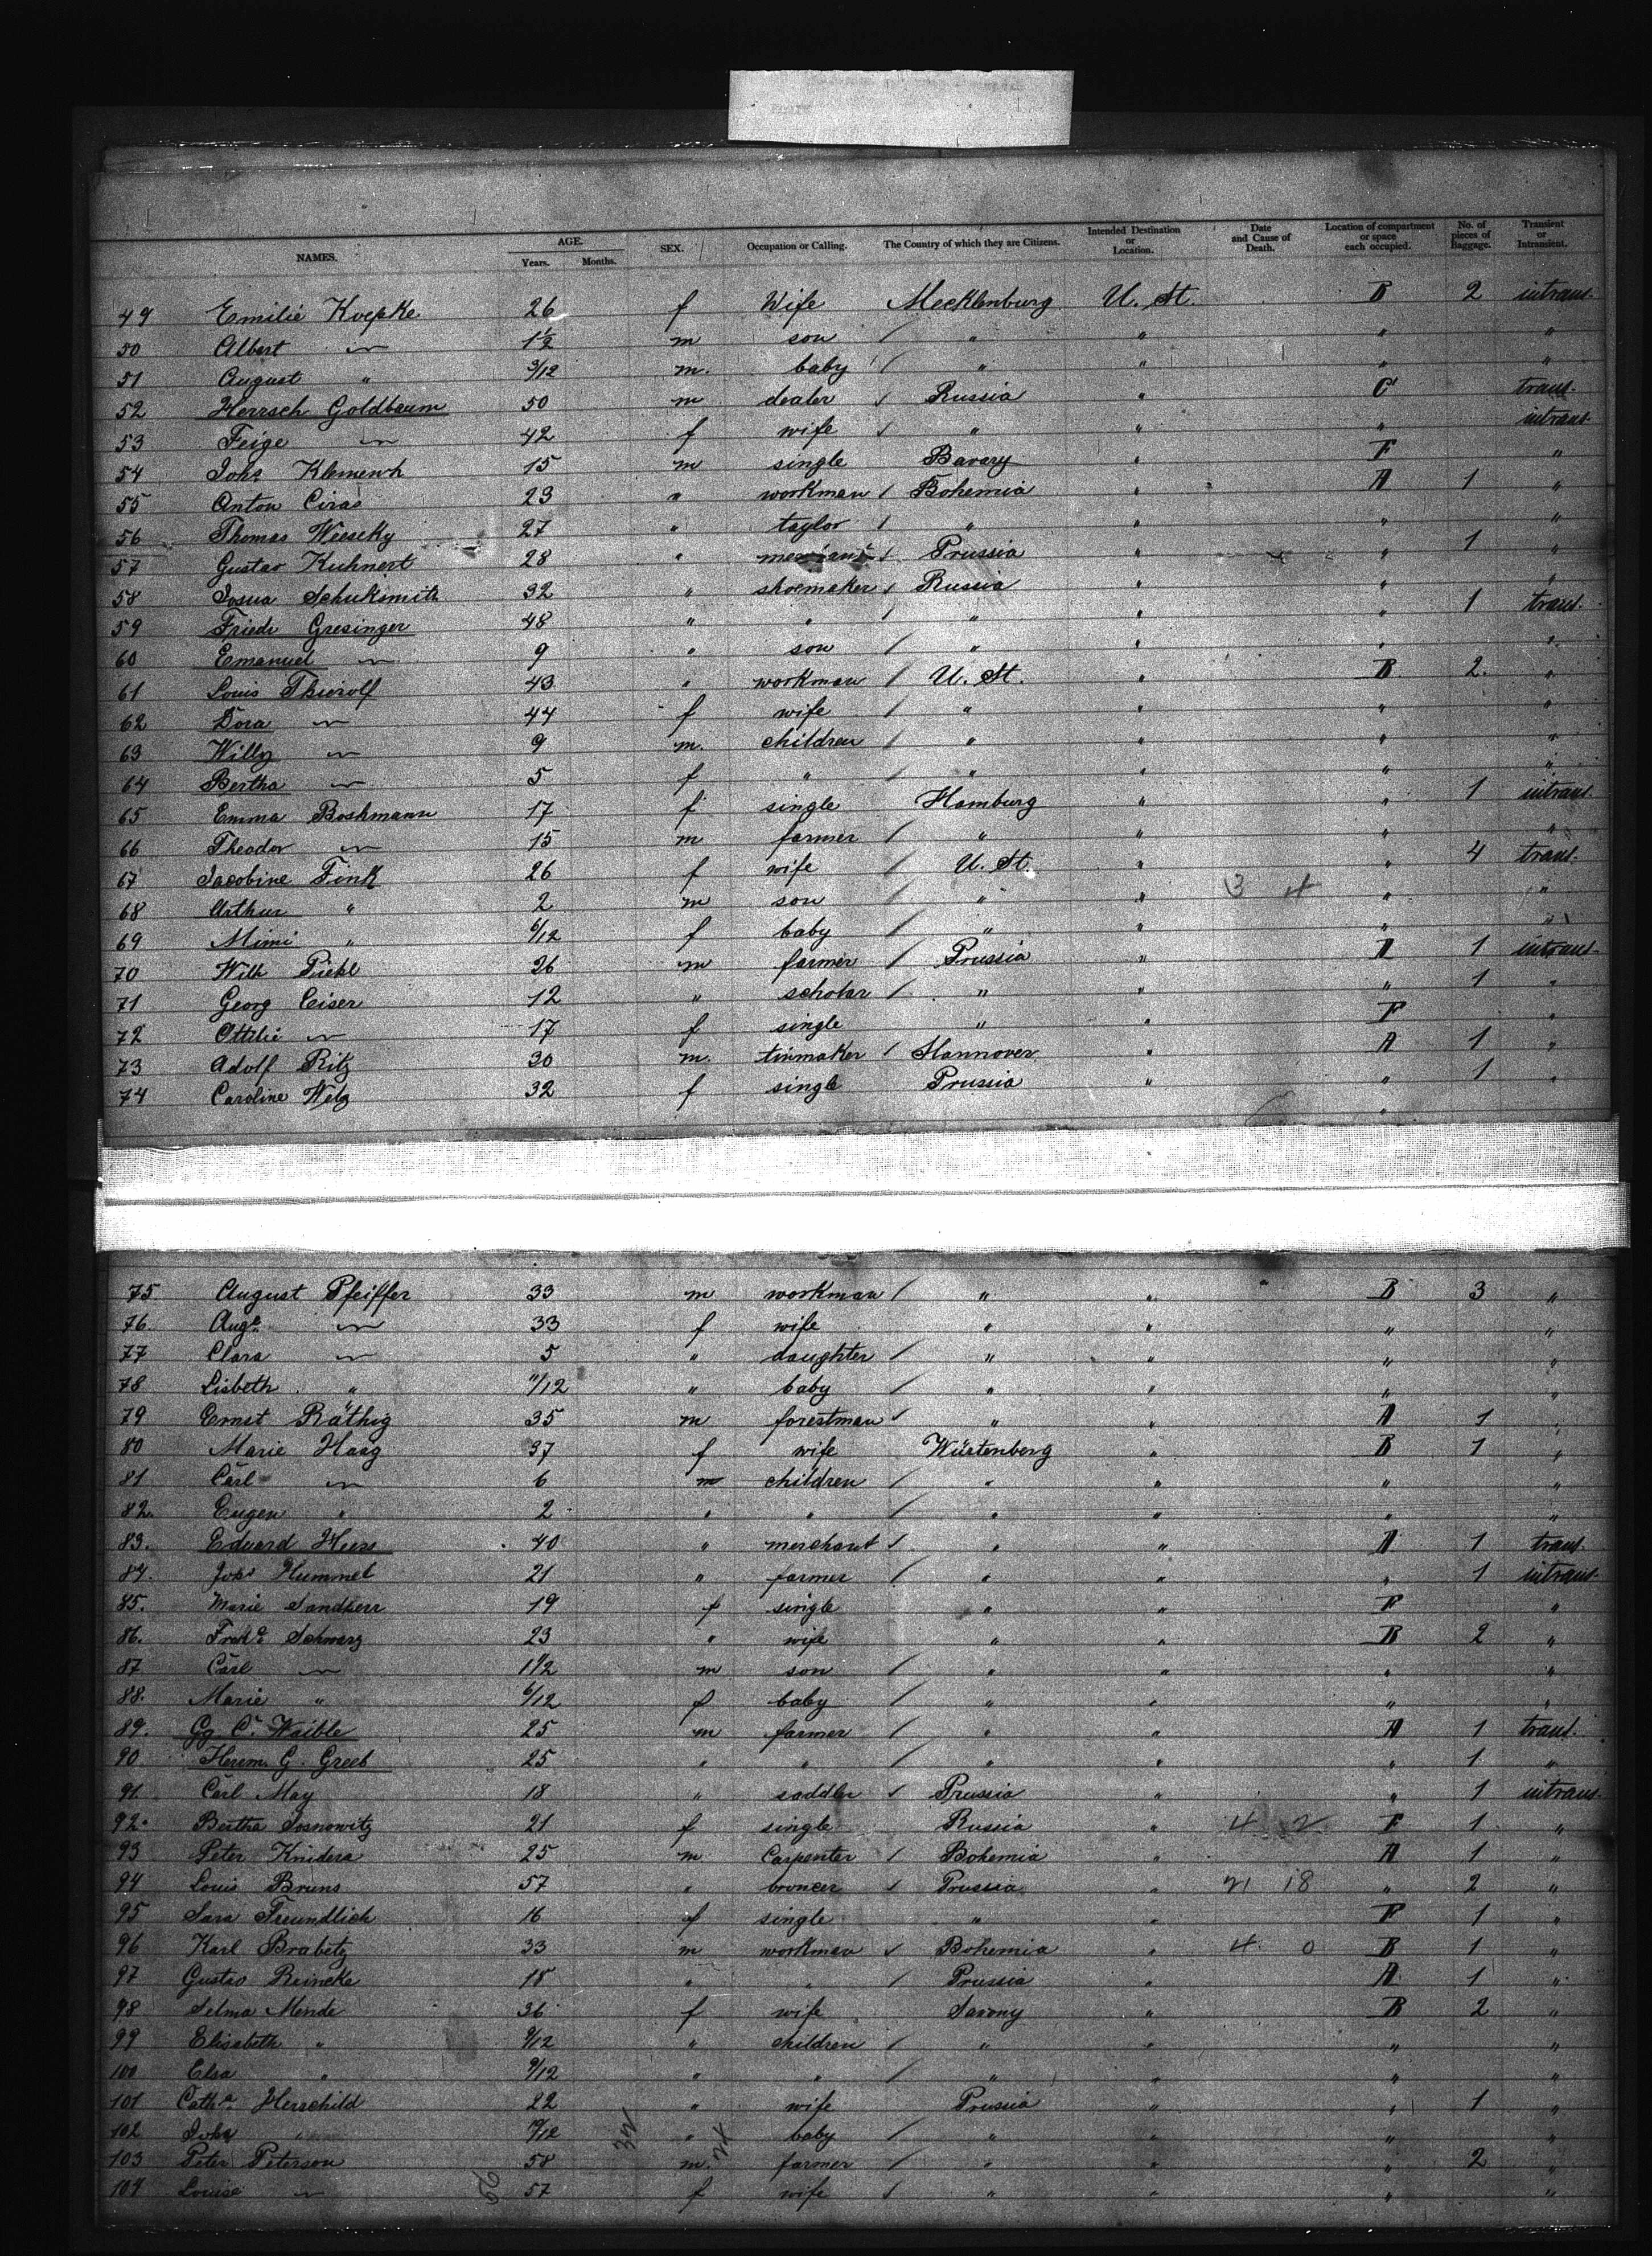 NAMES. AGE. Years. Months. SEX. Occupation or Calling. The Country of which they are Citizens. Intended Destination or Location. Date and Cause of Death. Location of compartment or space each occupied. No. of pieces of Baggage. Transient or Intransient.
49 Emilie Koepke 26 f Wife Mecklenburg U. St. B 2 intrans.
50 Albert 〃 1½ m son / " " " "
51 August " 3/12 m. baby / " " " "
52 Herrsch Goldbaum 50 m dealer / Russia " C trans.
53 Feige 〃 42 f wife / " " " intrans
54 Johs 15 m single Bavary " F "
55 Anton Ciras 23 " workman / Bohemia " A 1 "
56 Thomas 27 " taylor / " " " "
57 Gustav Kuhnert 28 " / Prussia " " 1 "
58 Josua Schuksmith 32 " shoemaker / Russia " " "
59 Friede Gresinger 48 " " / " " " 1 trans.
60 Emanuel 〃 9 " son / " " " "
61 Louis Thierolf 43 " workman / U. St. " B 2. "
62 Dora 〃 44 f wife / " " " "
63 Willy 〃 9 m. children / " " " "
64 Bertha 〃 5 f " / " " " "
65 Emma Boshmann 17 f single Hamburg " " 1 intrans
66 Theodor 〃 15 m farmer / " " " "
67 Jacobine Fink 26 f wife / U. St. " " 4 trans.
68 Arthur " 2 m son / " " 3 4 " "
69 Mimi " 6/12 f baby / " " " "
70 Wilh Piehl 26 m farmer / Prussia " A 1 intrans
71 Georg Eiser 12 " scholar / " " " 1 "
72 Ottilie 〃 17 f single " " F "
73 Adolf Ritz 30 m. tinmaker / Hannover " A 1 "
74 Caroline Welz 32 f single Prussia " " 1 "
75 August Pfeiffer 33 m workman / " " B 3 "
76. Auge 〃 33 f wife " " " "
77 Clara 〃 5 " daughter / " " " "
78 Lisbeth " 11/12 " baby / " " " "
79 Ernst Räthig 35 m forestman / " " A 1 "
80 Marie Haag 37 f wife Würtenberg " B 1 "
81 Carl 〃 6 m children / " " " "
82. Eugen " 2 " " / " " " "
83. Eduard Hess 40 " merchant / " " A 1 trans.
84. Johs Hummel 21 " farmer / " " " 1 intrans
85. Marie Sandherr 19 f single " " F "
86. Schwarz 23 " wife " " B 2 "
87 Carl 〃 1½ m son / " " " "
88. Marie " 6/12 f baby / " " " "
89. Gg C. Waible 25 m farmer / " " A 1 trans.
90 Herm. G. Greeb 25 " " / " " " 1 "
91. Carl May 18 " saddler / Prussia " " 1 intrans
92. Bertha Sosnowitz 21 f single Russia " 4 2 F 1 "
93 Peter Knidera 25 m Carpenter / Bohemia " A 1 "
94 Louis Bruns 57 " broncer / Prussia " 21 18 " 2 "
95 Sara Freundlich 16 f single " " F 1 "
96 Karl Brabetz 33 m workman / Bohemia " 4 0 B 1 "
97 Gustav Reincke 18 " " / Prussia " A 1 "
98 Selma Mende 36 f wife Saxony " B 2 "
99 Elisabeth " 9/12 " children / " " " "
100 Elsa " 9/12 " " / " " " "
101 Catha Herschild 22 " wife Prussia " " 1 "
102 " 10/12 " baby / " " " "
103 Peter Peterson 58 m. farmer / " " " 2 "
104 Louise 〃 57 f wife / " " " "